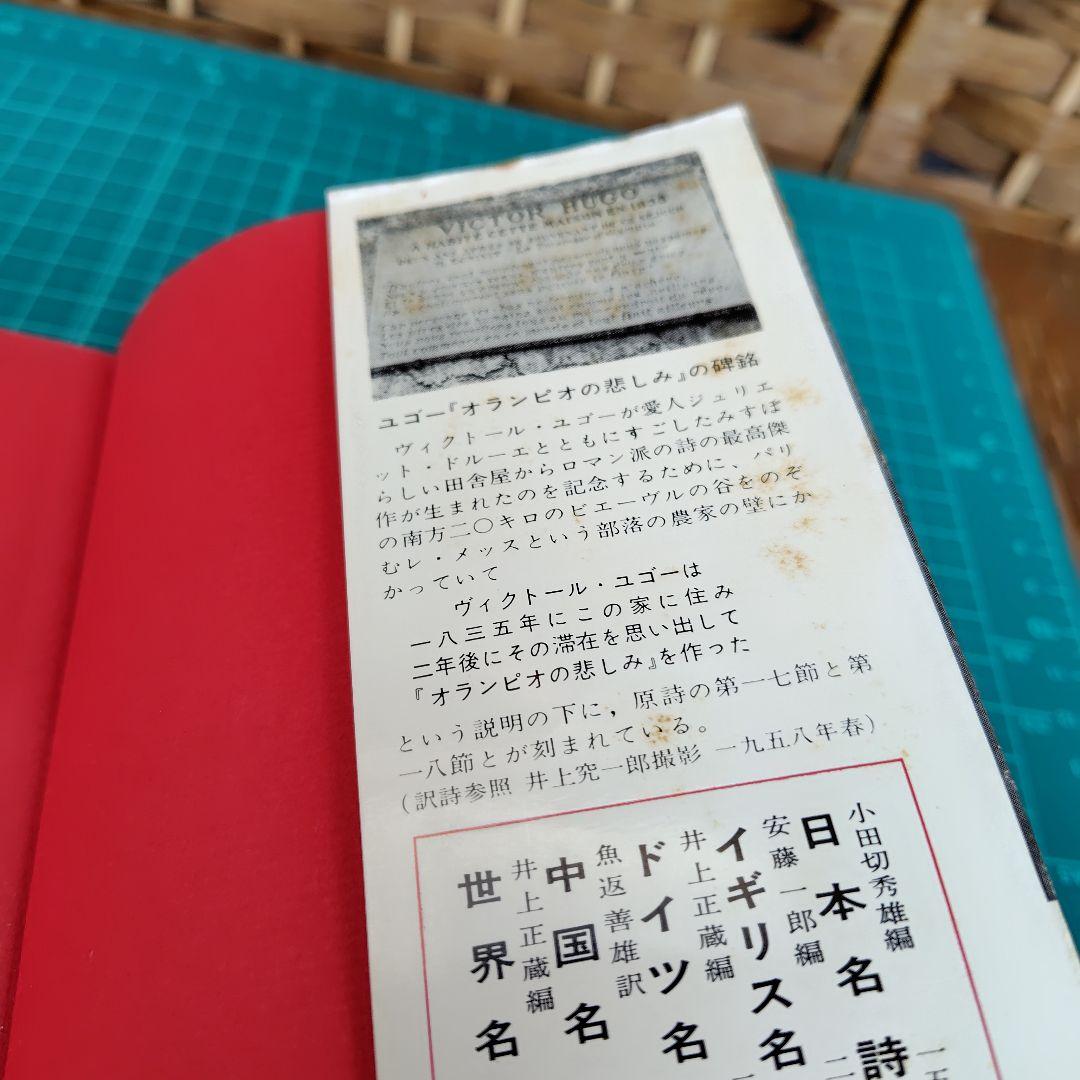 VICTOR HUGO
A HABITÉ CETTE MAISON EN 1835
ユゴー『オランピオの悲しみ』の碑銘
ヴィクトール・ユゴーが愛人ジュリエ
ット・ドルーエとともにすごしたみすぼ
らしい田舎屋からロマン派の詩の最高傑
作が生まれたのを記念するために、パリ
の南方二〇キロのビエーヴルの谷をのぞ
むレ・メッスという部落の農家の壁にか
かっていて
ヴィクトール・ユゴーは
一八三五年にこの家に住み
二年後にその滞在を思い出して
『オランピオの悲しみ』を作った
という説明の下に，原詩の第一七節と第
一八節とが刻まれている。
(訳詩参照 井上究一郎撮影 一九五八年春)
小田切秀雄編
日本名詩
安藤一郎編
イギリス名
井上正蔵編
ドイツ名
魚返善雄訳
中国名
井上正蔵編
世界名